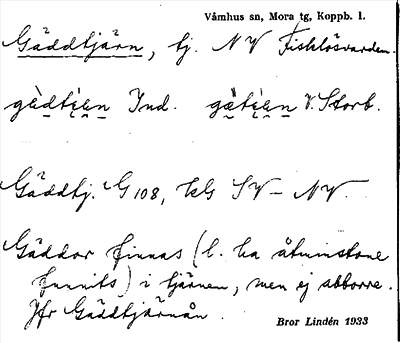 Våmhus sn, Mora tg, Koppb. l.
Gäddtjärn, tj. NV Fisklösvarden.
gèdtjèn Ind. gætjèn V. Storb.
Gäddtj. G 108, kls SV – NV.
Gäddor finnas (l. ha åtminstone
funnits) i tjärnen, men ej abborre.
Jfr Gäddtjärnån.
Bror Lindén 1933